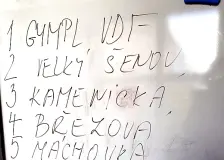 1 GYMPL VDF
2 VELKÝ ŠENOV,
3 KAMENICKÁ,
4 BŘEZOVÁ,
5 MACHOVKA